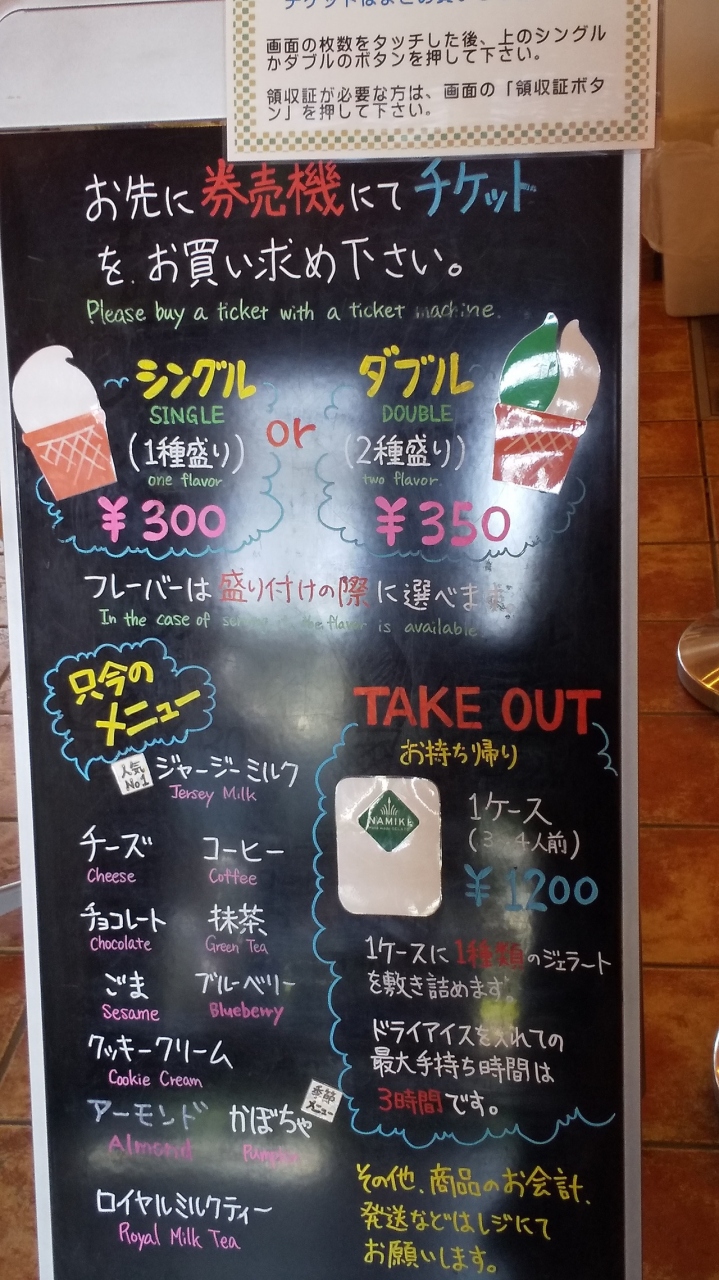 画面の枚数をタッチした後、上のシングル
かダブルのボタンを押して下さい。
領収証が必要な方は、画面の「領収証ボタ
ン」を押して下さい。
お先に券売機にてチケット
を、お買い求め下さい。
Please buy a ticket with a ticket machine.
シングル
SINGLE
(1種盛り)
one flavor
¥300
or
ダブル
DOUBLE
(2種盛り)
two flavor
¥350
フレーバーは盛り付けの際に選べます。
In the case of the flavor is available.
只今の
メニュー
人気
No1
ジャージーミルク
Jersey Milk
チーズ
Cheese
コーヒー
Coffee
チョコレート
Chocolate
抹茶
Green Tea
ごま
Sesame
ブルーベリー
Blueberry
クッキークリーム
Cookie Cream
アーモンド
Almond
季節
メニュー
かぼちゃ
Pumpkin
ロイヤルミルクティー
Royal Milk Tea
TAKE OUT
お持ち帰り
NAMIKI
1ケース
(3〜4人前)
¥1200
1ケースに1種類のジェラート
を敷き詰めます。
ドライアイスを入れての
最大手持ち時間は
3時間です。
その他、商品のお会計、
発送などはレジにて
お願いします。